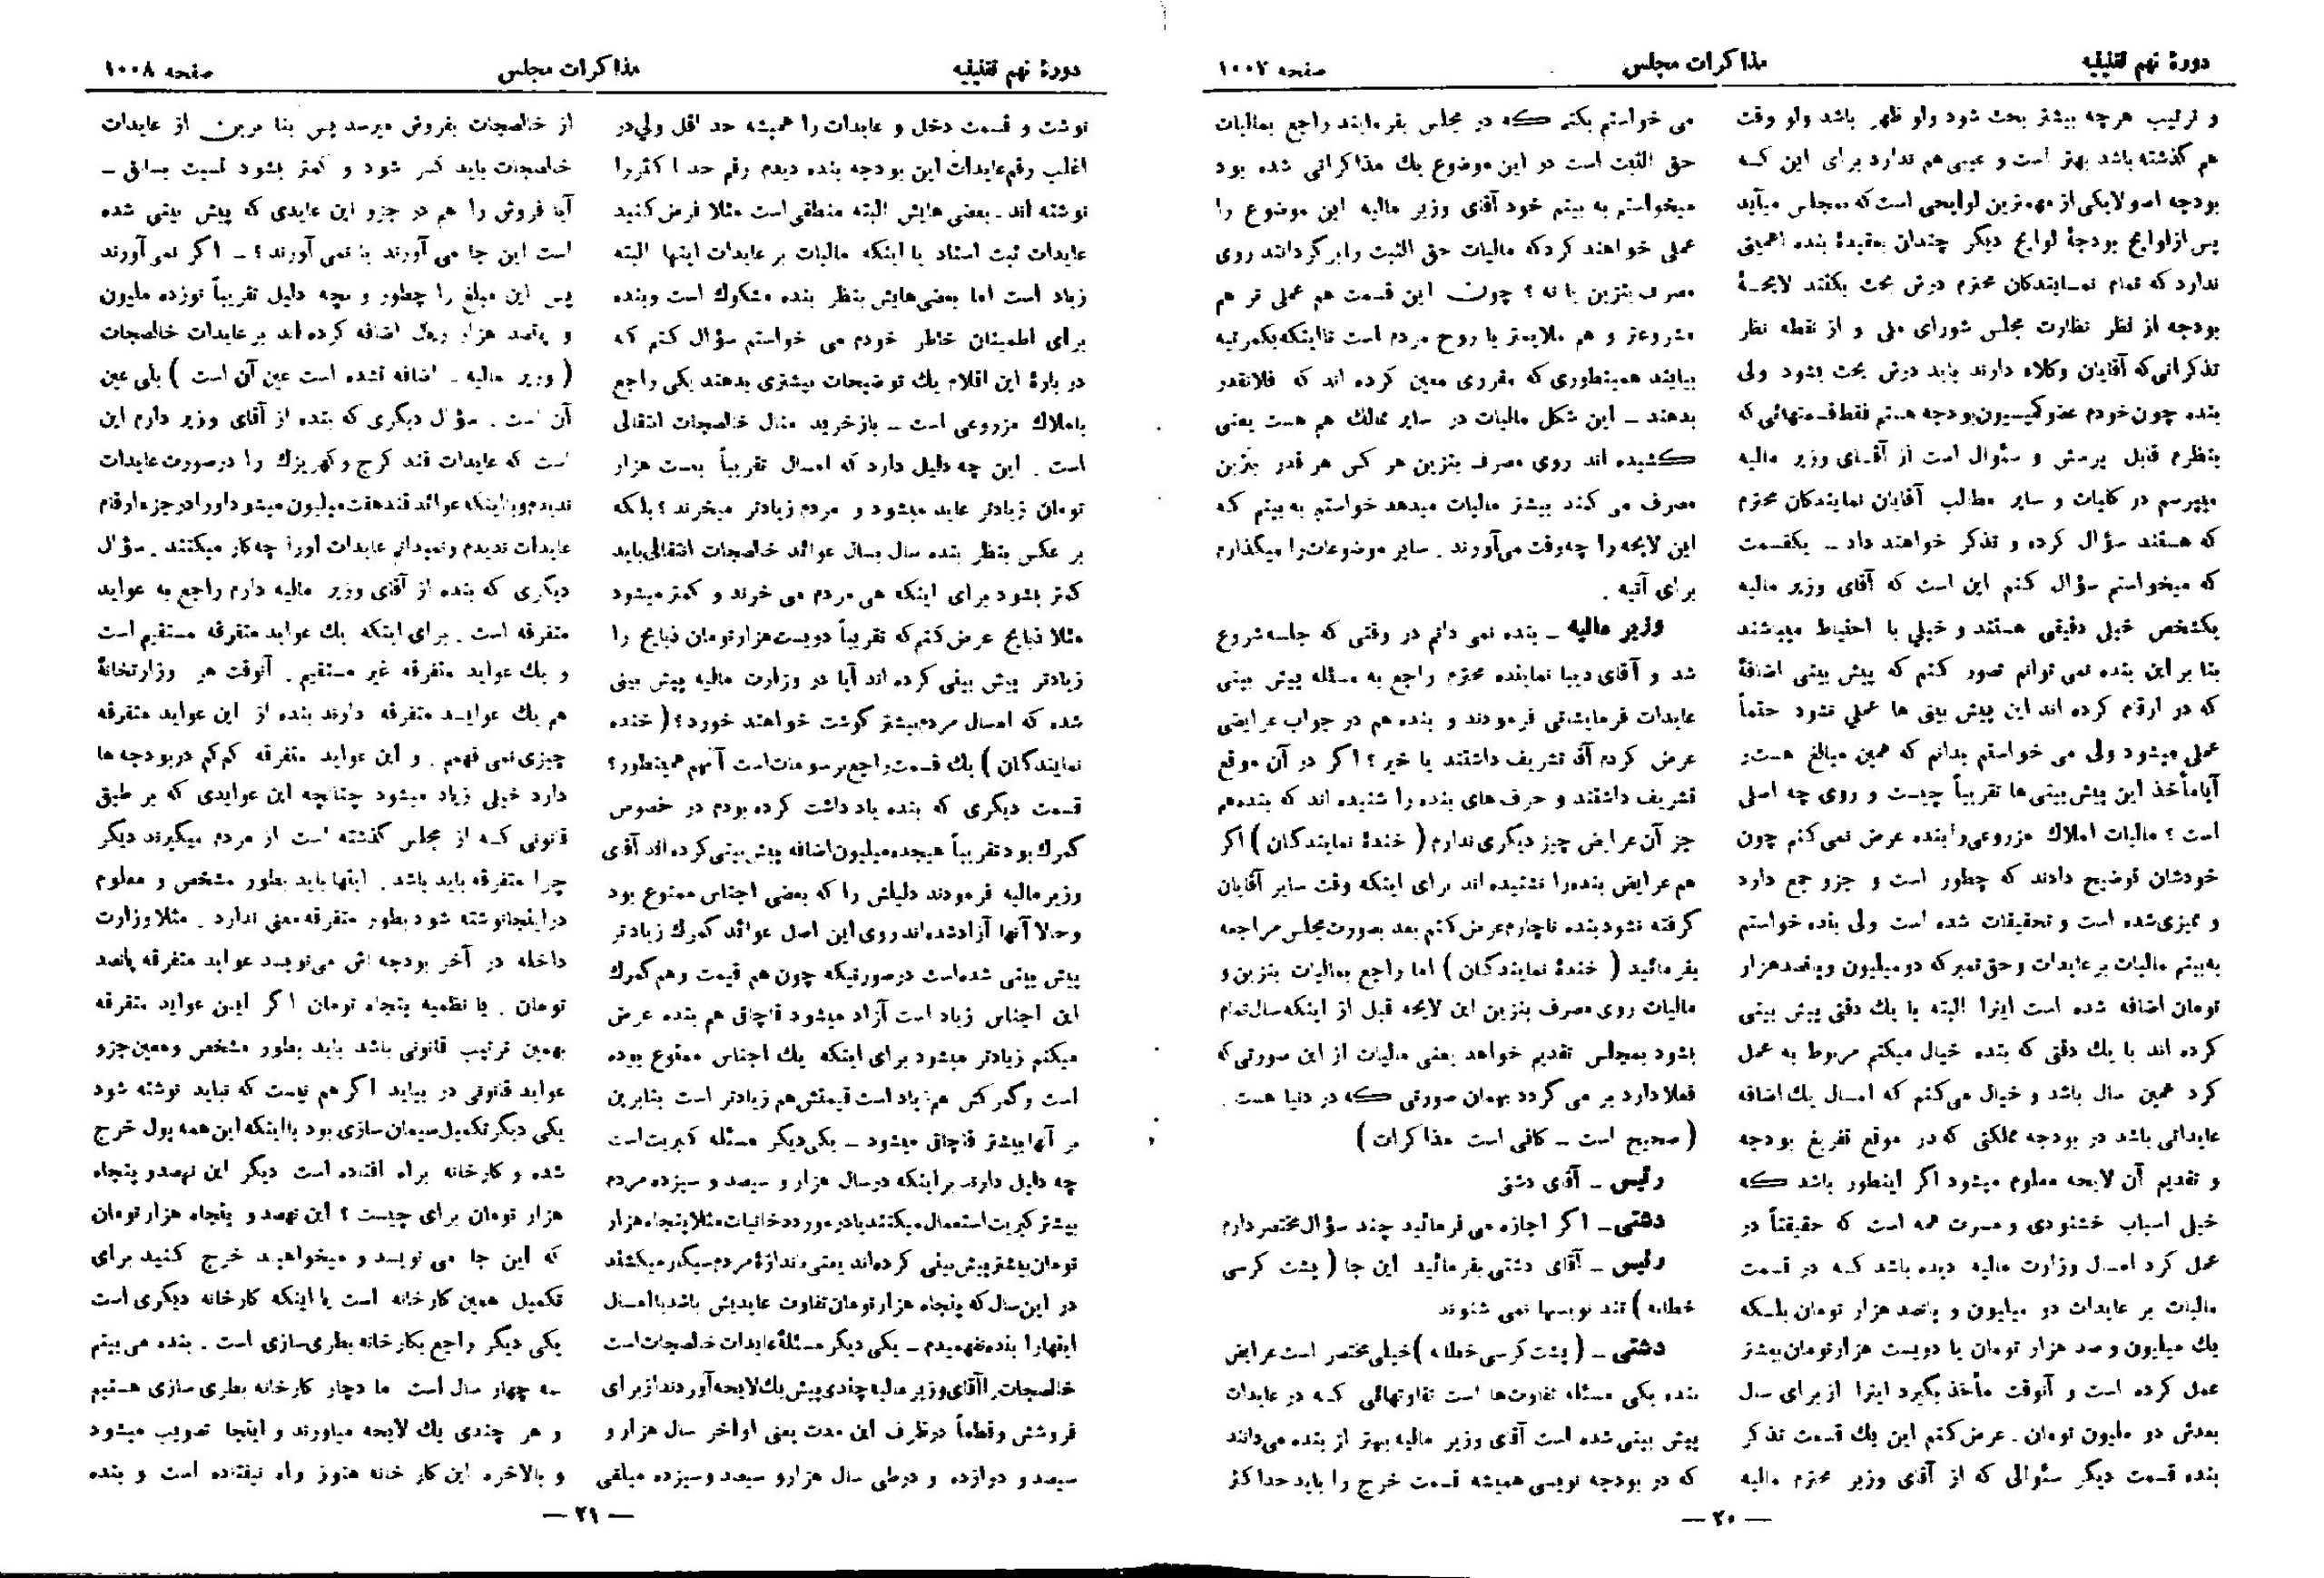 دورهٔ نهم تقنینیه
مذاکرات مجلس
صفحه ۱۰۰۷
و ترتیب هرچه بیشتر بحث شود ولو ظهر باشد ولو وقت
هم گذشته باشد بهتر است و عیبی هم ندارد برای این که
بودجه اصولا یکی از مهمترین لوایحی است که بمجلس میآید
پس از لوایح بودجهٔ لوایح دیگر چندان بعقیدهٔ بنده اهمیتی
ندارد که تمام نمایندگان محترم درش بحث بکنند لایحهٔ
بودجه از نظر نظارت مجلس شورای ملی و از نقطه نظر
تذکراتی که آقایان وکلاء دارند باید درش بحث بشود ولی
بنده چون خودم عضو کمیسیون بودجه هستم فقط قسمتهائی که
بنظرم قابل پرسش و سئوال است از آقای وزیر مالیه
میپرسم در کلیات و سایر مطالب آقایان نمایندگان محترم
که هستند سؤال کرده و تذکر خواهند داد ـ یکقسمت
که میخواستم سؤال کنم این است که آقای وزیر مالیه
یکشخص خیلی دقیقی هستند و خیلی با احتیاط میباشند
بنا بر این بنده نمی توانم تصور کنم که پیش بینی اضافهٔ
که در ارقام کرده اند این پیش بینی ها عملی نشود حتماً
عملی میشود ولی می خواستم بدانم که همین مبالغ هست
آیا مأخذ این پیش بینی‌ها تقریباً چیست و روی چه اصلی
است ؟ مالیات املاك مزروعی را بنده عرض نمی کنم چون
خودشان توضیح دادند که چطور است و جزو جمع دارد
و ممیزی شده است و تحقیقات شده است ولی بنده خواستم
به بینم مالیات بر عایدات و حق تمبر که دو میلیون و پانصد هزار
تومان اضافه شده است اینرا البته با یك دقتی پیش بینی
کرده اند با یك دقتی که بنده خیال میکنم مربوط به عمل
کرد همین سال باشد و خیال می‌کنم که امسال یك اضافه
عایداتی باشد در بودجه مملکتی که در موقع تفریغ بودجه
و تقدیم آن لایحه معلوم میشود اگر اینطور باشد که
خیلی اسباب خشنودی و مسرت همه است که حقیقتاً در
عمل کرد امسال وزارت مالیه دیده باشد که در قسمت
مالیات بر عایدات دو میلیون و پانصد هزار تومان بلکه
یك میلیون و صد هزار تومان یا دویست هزار تومان بیشتر
عمل کرده است و آنوقت مأخذ بگیرد اینرا از برای سال
بعدش دو ملیون تومان . عرض کنم این یك قسمت تذکر
بنده قسمت دیگر سئوالی که از آقای وزیر محترم مالیه
می خواستم بکنم که در مجلس بفرمایند راجع بمالیات
حق الثبت است در این موضوع یك مذاکراتی شده بود
میخواستم به بینم خود آقای وزیر مالیه این موضوع را
عملی خواهند کرد که مالیات حق الثبت را برگردانند روی
مصرف بنزین یا نه ؟ چون این قسمت هم عملی تر هم
مشروعتر و هم ملایمتر با روح مردم است تا اینکه یکمرتبه
بیایند همینطوری که مقرری معین کرده اند که فلانقدر
بدهند ـ این شکل مالیات در سایر ممالك هم هست یعنی
کشیده اند روی مصرف بنزین هر کس هر قدر بنزین
مصرف می کند بیشتر مالیات میدهد خواستم به بینم که
این لایحه را چه وقت می‌آورند . سایر موضوعات را میگذارم
برای آتیه .
وزیر مالیه ـ بنده نمی دانم در وقتی که جلسه شروع
شد و آقای دیبا نماینده محترم راجع به مسئله پیش بینی
عایدات فرمایشاتی فرمودند و بنده هم در جواب عرایضی
عرض کردم آقا تشریف داشتند یا خیر ؟ اگر در آن موقع
تشریف داشتند و حرف های بنده را شنیده اند که بنده هم
جز آن عرایض چیز دیگری ندارم ( خندهٔ نمایندگان ) اگر
هم عرایض بنده را نشنیده اند برای اینکه وقت سایر آقایان
گرفته نشود بنده ناچارم عرض کنم بعد بصورت مجلس مراجعه
بفرمائید ( خندهٔ نمایندگان ) اما راجع بمالیات بنزین و
مالیات روی مصرف بنزین این لایحه قبل از اینکه سال تمام
بشود بمجلس تقدیم خواهد یعنی مالیات از این صورتی که
فعلا دارد بر می گردد بهمان صورتی که در دنیا هست .
( صحیح است ـ کافی است مذاکرات )
رئیس ـ آقای دشتی
دشتی ـ اگر اجازه می فرمائید چند سؤال مختصر دارم
رئیس ـ آقای دشتی بفرمائید این جا ( پشت کرسی
خطابه ) تند نویسها نمی شنوند
دشتی ـ ( پشت کرسی خطابه ) خیلی مختصر است عرایض
بنده یکی مسئله تفاوت‌ها است تفاوتهائی که در عایدات
پیش بینی شده است آقای وزیر مالیه بهتر از بنده می‌دانند
که در بودجه نویسی همیشه قسمت خرج را باید حداکثر
— ۲۰ —
دورهٔ نهم تقنینیه
مذاکرات مجلس
صفحه ۱۰۰۸
نوشت و قسمت دخل و عایدات را همیشه حد اقل ولی در
اغلب رقم عایدات این بودجه بنده دیدم رقم حد اکثر را
نوشته اند ـ بعضی هایش البته منطقی است مثلا فرض کنید
عایدات ثبت اسناد یا اینکه مالیات بر عایدات اینها البته
زیاد است اما بعضی‌هایش بنظر بنده مشکوك است و بنده
برای اطمینان خاطر خودم می خواستم سؤال کنم که
در بارهٔ این اقلام یك توضیحات بیشتری بدهند یکی راجع
باملاك مزروعی است ـ بازخرید مثال خالصجات انتقالی
است . این چه دلیل دارد که امسال تقریباً بیست هزار
تومان زیادتر عاید میشود و مردم زیادتر میخرند ؟ بلکه
بر عکس بنظر بنده سال بسال عوائد خالصجات انتقالی باید
کمتر بشود برای اینکه هی مردم می خرند و کمتر میشود
مثلا ذبایح عرض کنم که تقریباً دویست هزار تومان ذبایح را
زیادتر پیش بینی کرده اند آیا در وزارت مالیه پیش بینی
شده که امسال مردم بیشتر گوشت خواهند خورد ؟ ( خنده
نمایندگان ) یك قسمت راجع برسومات است آنهم همینطور ؟
قسمت دیگری که بنده یاد داشت کرده بودم در خصوص
گمرك بود تقریباً هیجده میلیون اضافه پیش بینی کرده اند آقای
وزیر مالیه فرمودند دلیلش را که بعضی اجناس ممنوع بود
و حالا آنها آزاد شده‌اند روی این اصل عوائد گمرك زیادتر
پیش بینی شده است درصورتیکه چون هم قیمت و هم گمرك
این اجناس زیاد است آزاد میشود قاچاق هم بنده عرض
میکنم زیادتر میشود برای اینکه یك اجناس ممنوع بوده
است و گمرکش هم زیاد است قیمتش هم زیادتر است بنابراین
بر آنها بیشتر قاچاق میشود ـ یکی دیگر مسئله کبریت است
چه دلیل دارند بر اینکه در سال هزار و سیصد و سیزده مردم
بیشتر کبریت استعمال میکنند یا در مورد دخانیات مثلا پنجاه هزار
تومان بیشتر پیش بینی کرده‌اند یعنی باندازهٔ مردم سیگار میکشند
در این سال که پنجاه هزار تومان تفاوت عایدیش باشد با امسال
اینها را بنده نفهمیدم ـ یکی دیگر مسئلهٔ عایدات خالصجات است
خالصجات را آقای وزیر مالیه چندی پیش یك لایحه آوردند از برای
فروشش و قطعاً در ظرف این مدت یعنی اواخر سال هزار و
سیصد و دوازده و در طی سال هزار و سیصد و سیزده مبلغی
از خالصجات بفروش میرسد پس بنا براین از عایدات
خالصجات باید کسر شود و کمتر بشود نسبت بسابق ـ
آیا فروش را هم در جزو این عایدی که پیش بینی شده
است این جا می آورند یا نمی آورند ؟ ـ اگر نمی آورند
پس این مبلغ را چطور و بچه دلیل تقریباً نوزده ملیون
و پانصد هزار ریال اضافه کرده اند بر عایدات خالصجات
( وزیر مالیه ـ اضافه نشده است عین آن است ) بلی عین
آن است . سؤال دیگری که بنده از آقای وزیر دارم این
است که عایدات قند کرج و کهریزك را در صورت عایدات
ندیدم و با اینکه عوائد قند هفت میلیون میشود او را در جزء ارقام
عایدات ندیدم و نمیدانم عایدات او را چه کار میکنند . سؤال
دیگری که بنده از آقای وزیر مالیه دارم راجع به عواید
متفرقه است . برای اینکه یك عواید متفرقه مستقیم است
و یك عواید متفرقه غیر مستقیم . آنوقت هر وزارتخانهٔ
هم یك عواید متفرقه دارند بنده از این عواید متفرقه
چیزی نمی فهمم . و این عواید متفرقه کم کم در بودجه ها
دارد خیلی زیاد میشود چنانچه این عوایدی که بر طبق
قانونی که از مجلس گذشته است از مردم میگیرند دیگر
چرا متفرقه باید باشد . اینها باید بطور مشخص و معلوم
در اینجا نوشته شود بطور متفرقه معنی ندارد . مثلا وزارت
داخله در آخر بودجه اش می نویسد عواید متفرقه پانصد
تومان . یا نظمیه پنجاه تومان اگر این عواید متفرقه
بهمین ترتیب قانونی باشد باید بطور مشخص و معین جزو
عواید قانونی در بیاید اگر هم نیست که نباید نوشته شود
یکی دیگر تکمیل سیمان سازی بود با اینکه این همه پول خرج
شده و کارخانه براه افتاده است دیگر این نهصد و پنجاه
هزار تومان برای چیست ؟ این نهصد و پنجاه هزار تومان
که این جا می نویسد و میخواهید خرج کنید برای
تکمیل همین کارخانه است یا اینکه کارخانه دیگری است
یکی دیگر راجع بکارخانه بطری سازی است . بنده می بینم
سه چهار سال است ما دچار کارخانه بطری سازی هستیم
و هر چندی یك لایحه میاورند و اینجا تصویب میشود
و بالاخره این کارخانه هنوز راه نیفتاده است و بنده
— ۲۱ —